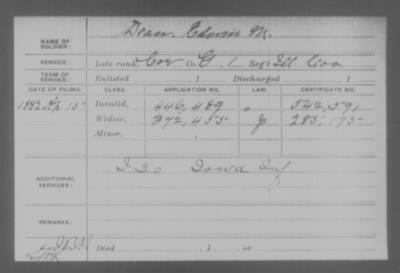 NAME OF SOLDIER: Dean, Edwin M.
SERVICE: Late rank, Cor Co. G, 1 Reg't Ill Cav
TERM OF SERVICE: Enlisted , 1 Discharged , 1
DATE OF FILING. CLASS. APPLICATION NO. LAW. CERTIFICATE NO.
1882 15 Invalid, 446,489 542,591
Widow, 372,455 G 285,175
Minor,
ADDITIONAL SERVICES: Iowa Inf
REMARKS:
Died , 1 , at